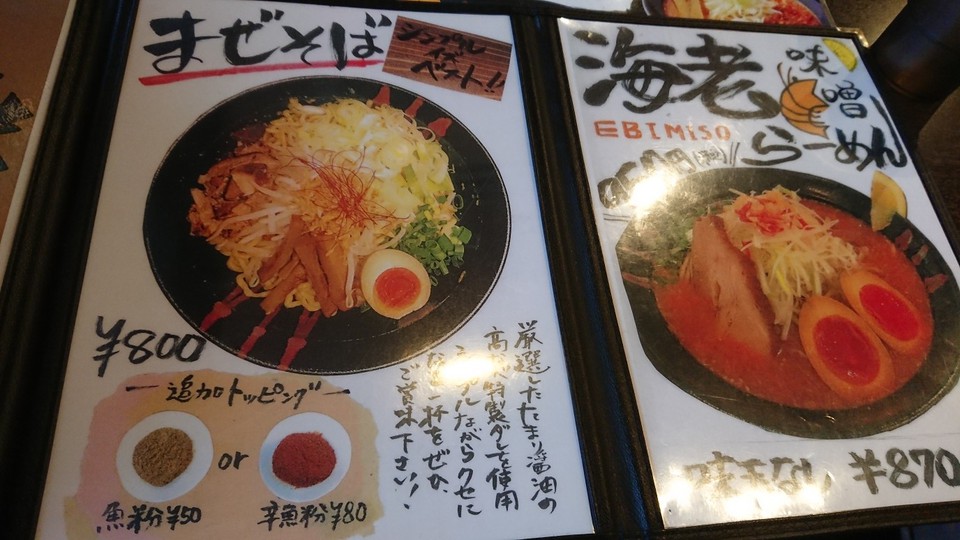 まぜそば
シンプル
イズ
ベスト!!
¥800
追加トッピング
or
魚粉¥50
辛魚粉¥80
厳選したたまり醤油の
特製ダレを使用
ながらクセに
一杯をぜひ、
ご賞味下さい!
海老
味噌
EBIMISO
らーめん
味玉なし ¥870